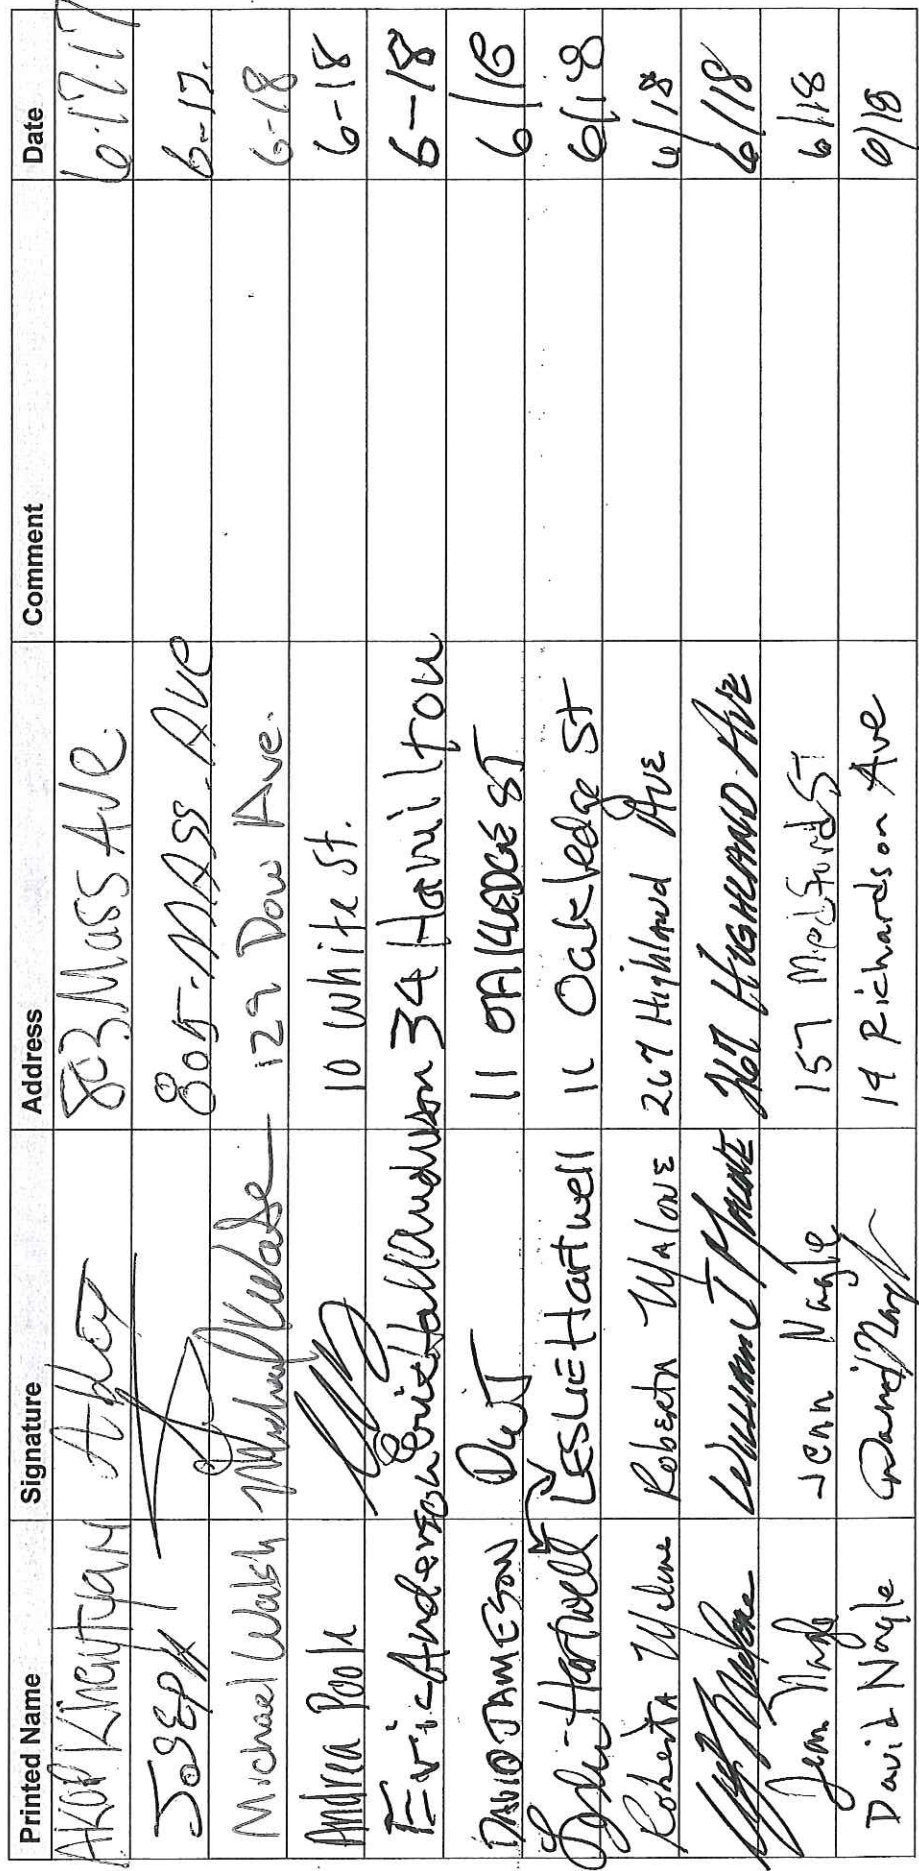 Printed Name Signature Address Comment Date
AKOP 803 Mass Ave. 6.17.17
JOSEPH 805-MASS.AVE 6-17.
Michael Walsh 122 Dow Ave. 6-18
Andrea Pook 10 White St. 6-18
Eric Anderson Eric Hall Anderson 34 Hamilton 6-18
DAVID JAMESON 11 OAKLEDGE ST 6/18
Leslie Hartwell LESLIE Hartwell 11 Oakledge St 6/18
Roberta Malone Roberta Malone 267 Highland Ave 6/18
William J Malone 267 HIGHLAND AVE 6/18
Jenn Nagle Jenn Nagle 157 Medford ST 6/18
David Nagle David Nagle 14 Richardson Ave 6/18